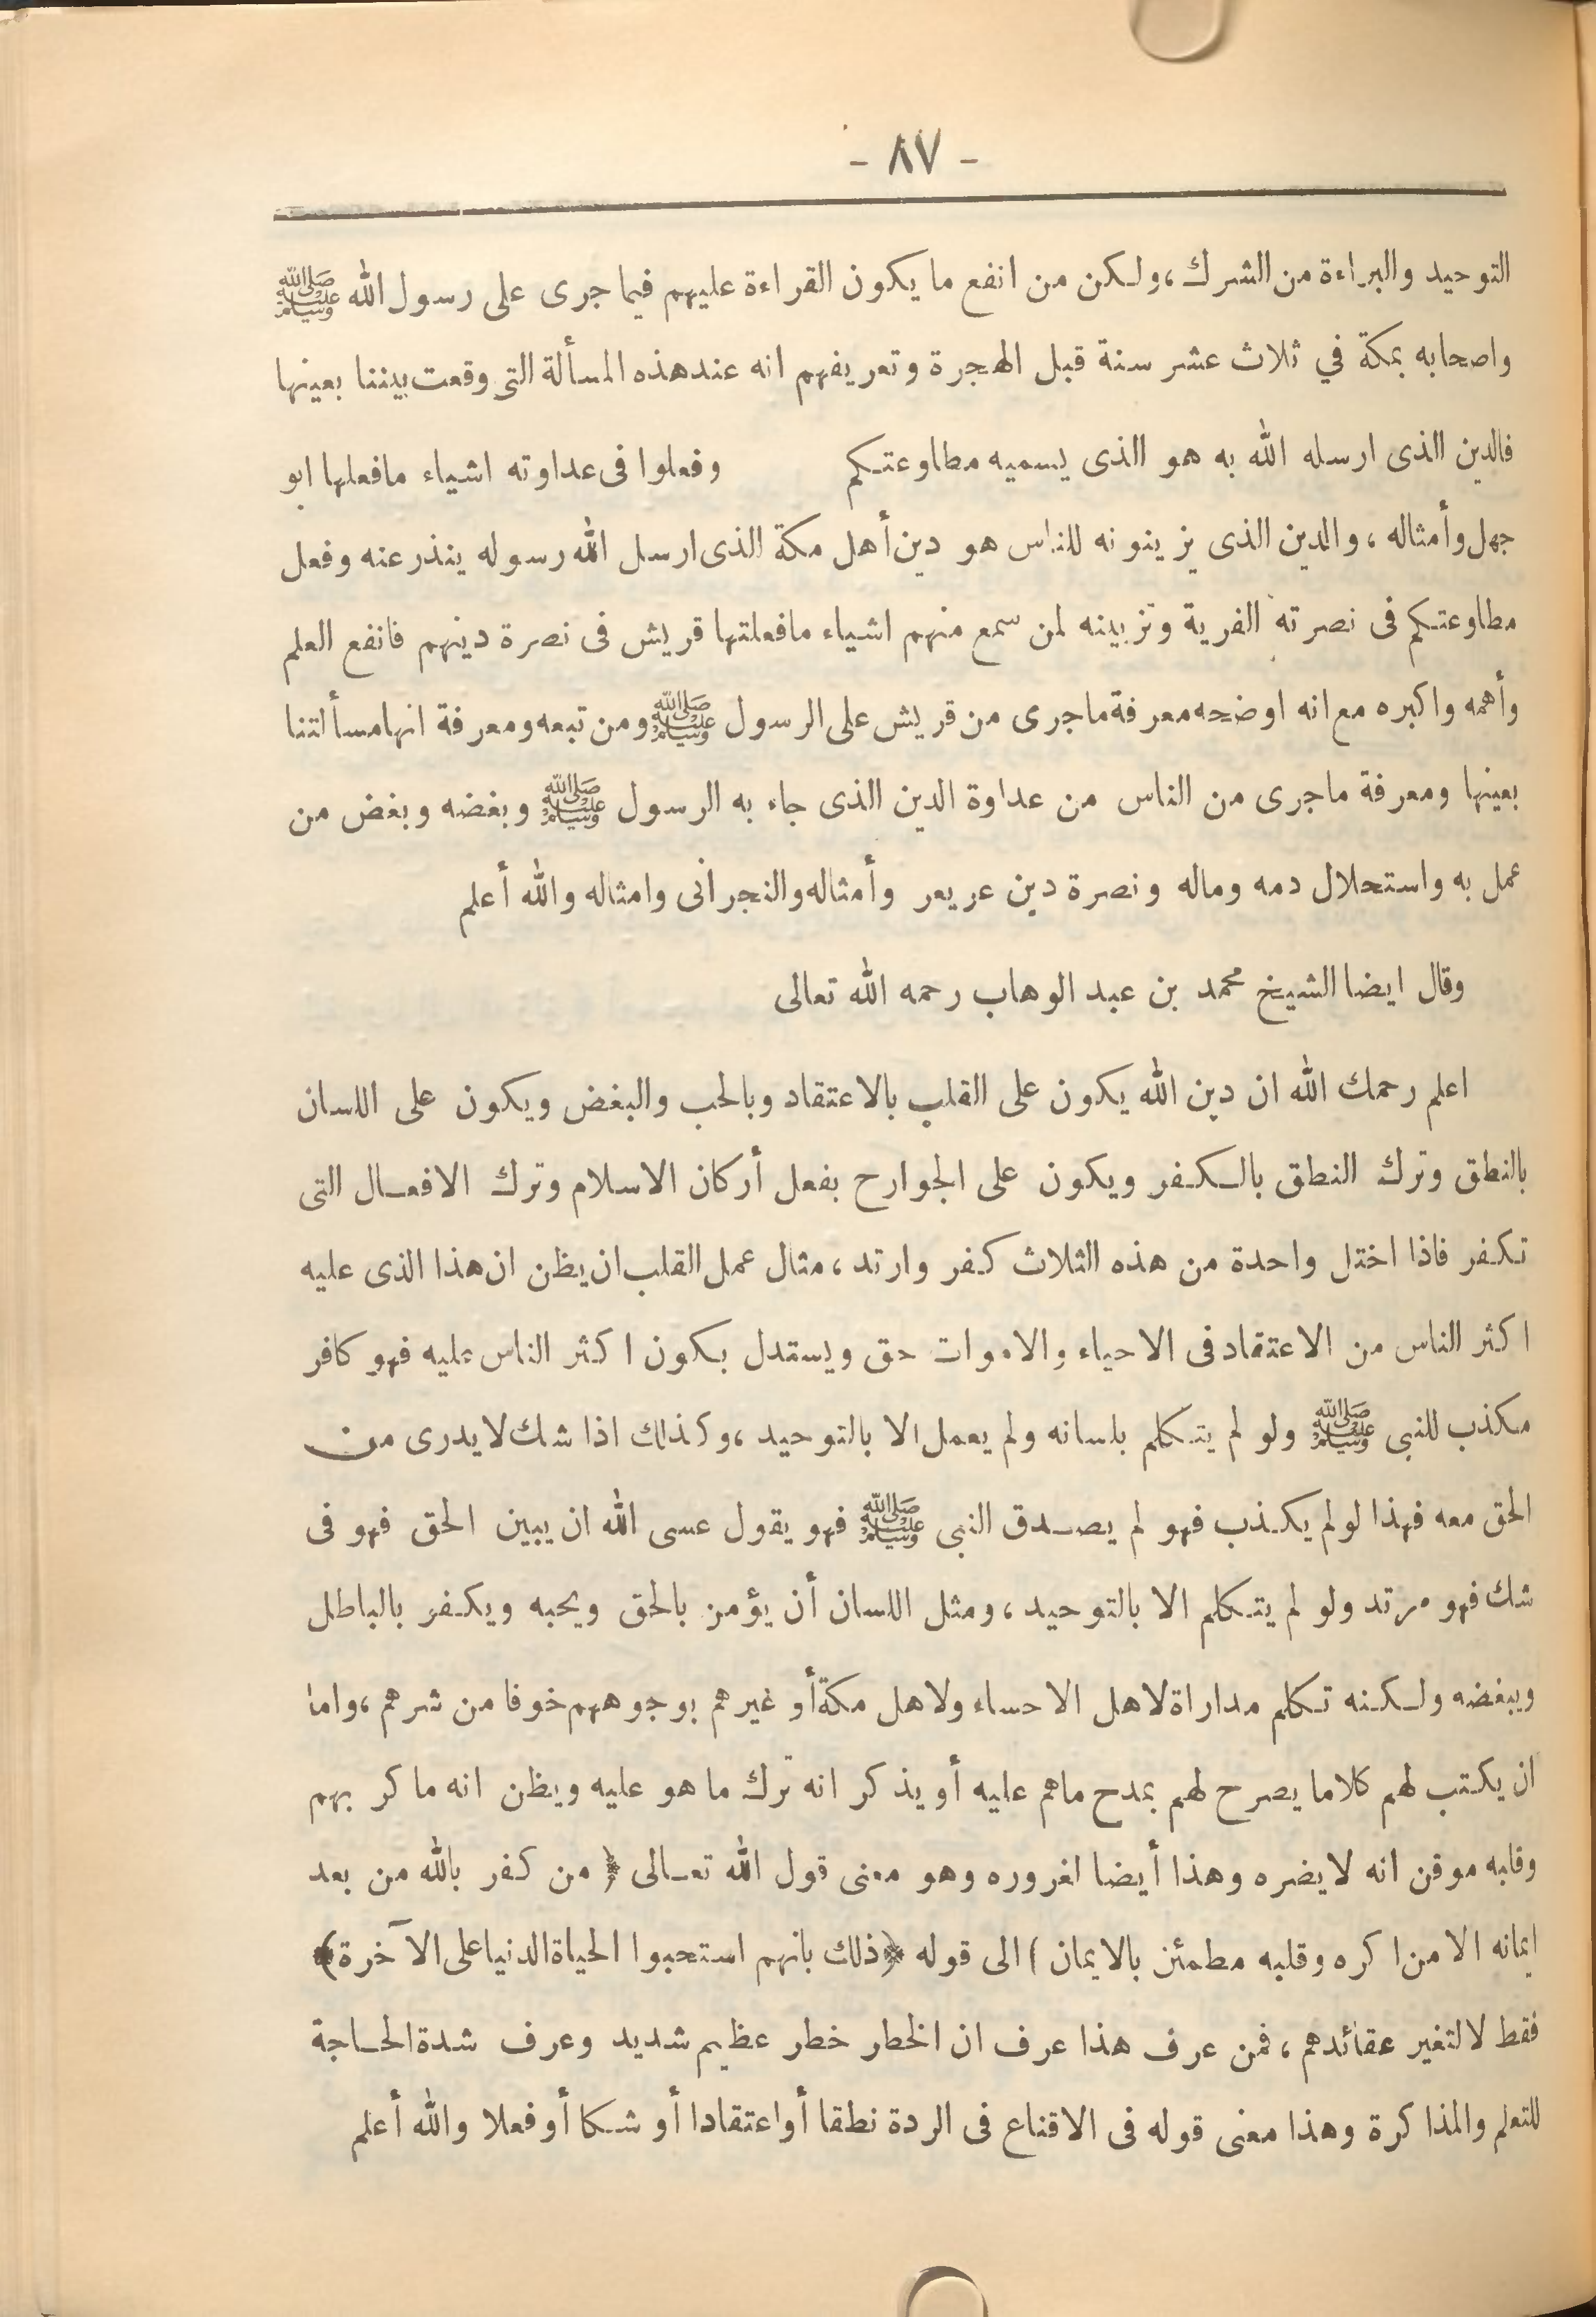 - ٨٧ -
التوحيد والبراءة من الشرك ، ولكن من انفع ما يكون القراءة عليهم فيما جرى على رسول الله ﷺ
واصحابه بمكة في ثلاث عشر سنة قبل الهجرة وتعريفهم انه عند هذه المسألة التى وقعت بيننا بعينها
فالدين الذى ارسله الله به هو الذى يسميه مطاوعتكم وفعلوا فى عداوته اشياء مافعلها ابو
جهل وأمثاله ، والدين الذى يزينونه للناس هو دين أهل مكة الذى ارسل الله رسوله ينذر عنه وفعل
مطاوعتكم فى نصرته الفرية وتزيينه لمن سمع منهم اشياء مافعلتها قريش فى نصرة دينهم فانفع العلم
وأهمه واكبره مع انه اوضحه معرفة ماجرى من قريش على الرسول ﷺ ومن تبعه ومعرفة انها مسألتنا
بعينها ومعرفة ماجرى من الناس من عداوة الدين الذى جاء به الرسول ﷺ وبغضه وبغض من
عمل به واستحلال دمه وماله ونصرة دين عريعر وأمثاله والنجرانى وامثاله والله أعلم
وقال ايضا الشيخ محمد بن عبد الوهاب رحمه الله تعالى
اعلم رحمك الله ان دين الله يكون على القلب بالاعتقاد وبالحب والبغض ويكون على اللسان
بالنطق وترك النطق بالكفر ويكون على الجوارح بفعل أركان الاسلام وترك الافعال التى
تكفر فاذا اختل واحدة من هذه الثلاث كفر وارتد ، مثال عمل القلب ان يظن ان هذا الذى عليه
اكثر الناس من الاعتقاد فى الاحياء والاموات حق ويستدل بكون اكثر الناس عليه فهو كافر
مكذب للنبى ﷺ ولو لم يتكلم بلسانه ولم يعمل الا بالتوحيد ، وكذلك اذا شك لا يدرى من
الحق معه فهذا لو لم يكذب فهو لم يصدق النبى ﷺ فهو يقول عسى الله ان يبين الحق فهو فى
شك فهو مرتد ولو لم يتكلم الا بالتوحيد ، ومثل اللسان أن يؤمن بالحق ويحبه ويكفر بالباطل
ويبغضه ولكنه تكلم مداراة لاهل الاحساء ولاهل مكة أو غيرهم بوجوههم خوفا من شرهم ، واما
ان يكتب لهم كلاما يصرح لهم بمدح ماهم عليه أو يذكر انه ترك ما هو عليه ويظن انه ماكر بهم
وقلبه موقن انه لايضره وهذا أيضا لغروره وهو معنى قول الله تعالى ﴿ من كفر بالله من بعد
ايمانه الا من اكره وقلبه مطمئن بالايمان ) الى قوله ﴿ ذلك بانهم استحبوا الحياة الدنيا على الآخرة ﴾
فقط لالتغير عقائدهم ، فمن عرف هذا عرف ان الخطار خطر عظيم شديد وعرف شدة الحاجة
للتعلم والمذاكرة وهذا معنى قوله فى الاقناع فى الردة نطقا أو اعتقادا أو شكا أو فعلا والله أعلم